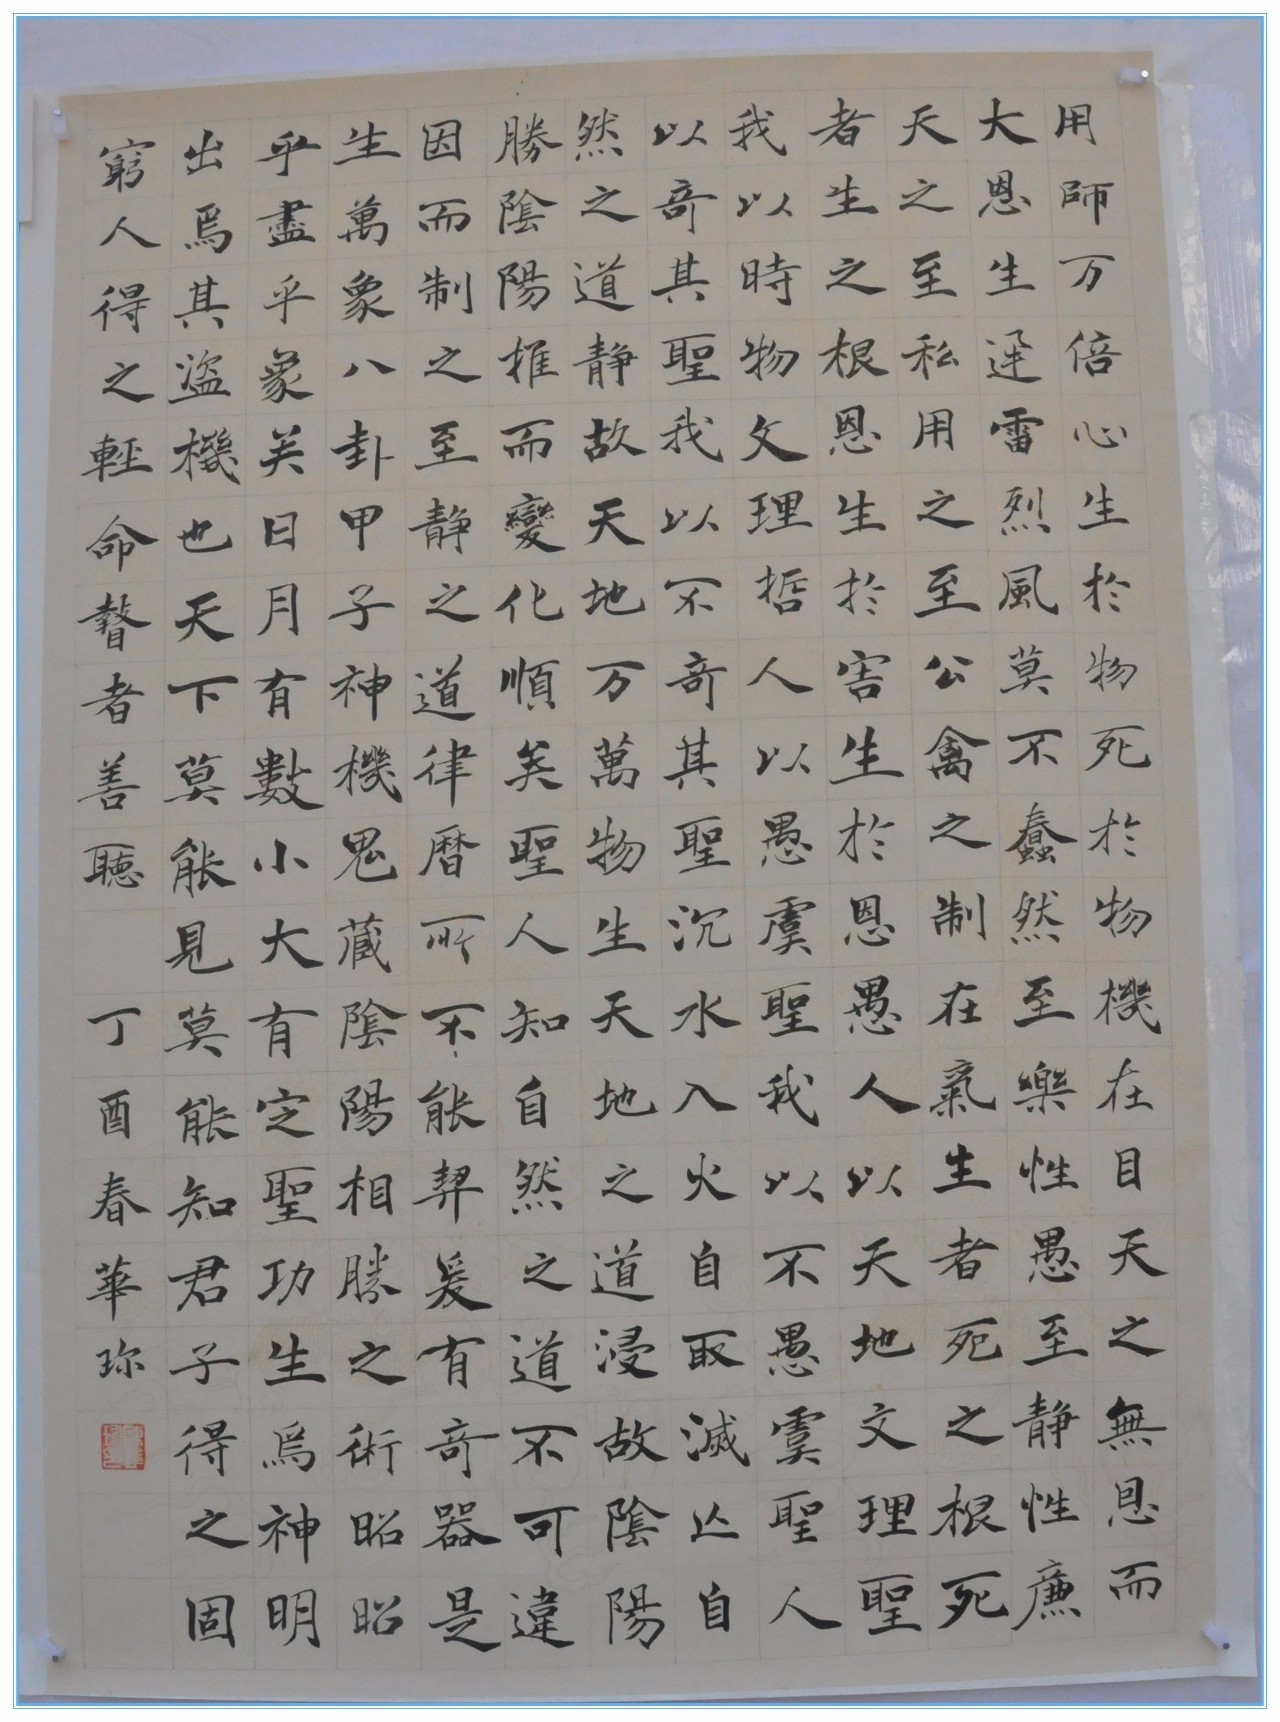 用師万倍心生於物死於物機在目天之無恩而
大恩生迅雷烈風莫不蠢然至樂性愚至静性廉
天之至私用之至公禽之制在氣生者死之根死
者生之根恩生於害生於恩愚人以天地文理聖
我以時物文理哲人以愚虞聖我以不愚虞聖人
以奇其聖我以不奇其聖沉水入火自取滅亡自
然之道静故天地万萬物生天地之道浸故陰陽
勝陰陽推而變化順矣聖人知自然之道不可違
因而制之至静之道律曆所不能契爰有奇器是
生萬象八卦甲子神機鬼藏陰陽相勝之術昭昭
乎盡乎象矣日月有數小大有定聖功生焉神明
出焉其盜機也天下莫能見莫能知君子得之固
窮人得之輕命瞽者善聽 丁酉春華珎